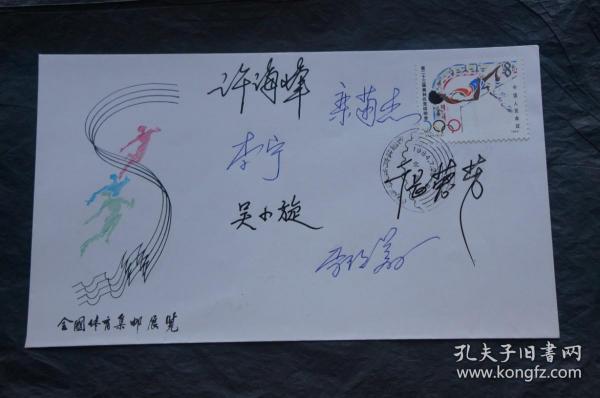 许海峰
栾菊杰
李宁
吴小旋
杨蓉芳
8分
第二十三届奥林匹克运动会
中国人民邮政
1984.7
全国体育集邮展览
孔夫子旧书网
www.kongfz.com